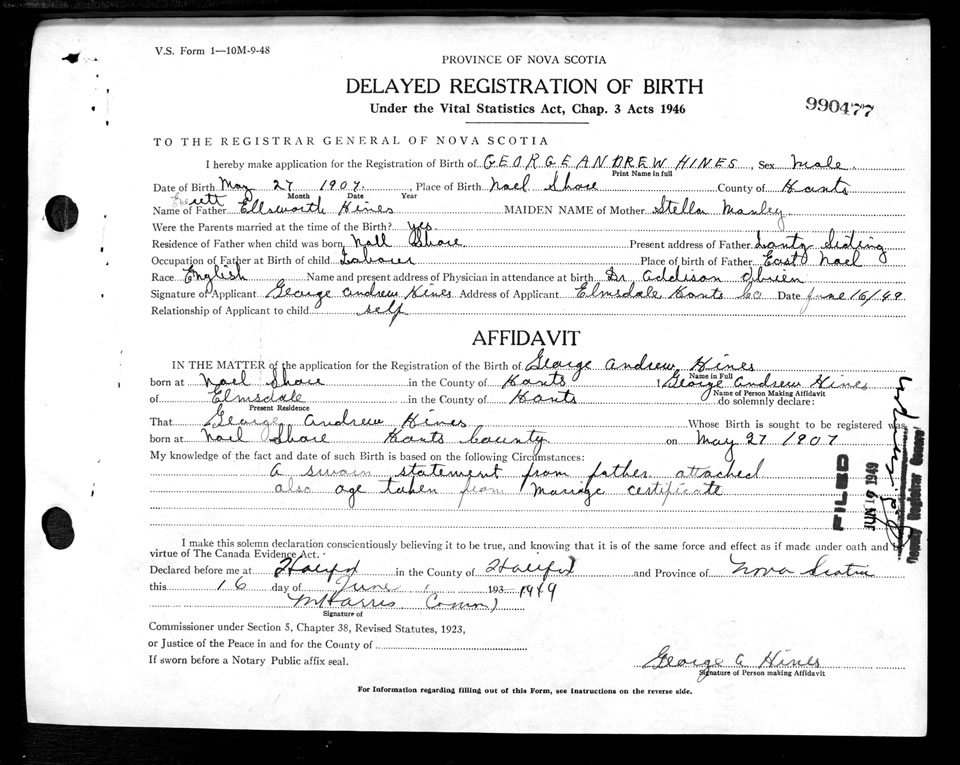 V.S. Form 1—10M-9-48
PROVINCE OF NOVA SCOTIA
DELAYED REGISTRATION OF BIRTH
Under the Vital Statistics Act, Chap. 3 Acts 1946
990477
TO THE REGISTRAR GENERAL OF NOVA SCOTIA
I hereby make application for the Registration of Birth of GEORGE ANDREW HINES, Sex Male.
Print Name in full
Date of Birth May 27 1907. Place of Birth Noel Shore County of Hants
Month Date Year
Name of Father Ellsworth Hines MAIDEN NAME of Mother Stella Manley
Were the Parents married at the time of the Birth? yes.
Residence of Father when child was born Noll Shore Present address of Father Lantz Siding
Occupation of Father at Birth of child Labourer Place of birth of Father East Noel
Race English Name and present address of Physician in attendance at birth Dr Addison Obrien
Signature of Applicant George Andrew Hines Address of Applicant Elmsdale Hants Co Date June 16/49
Relationship of Applicant to child self
AFFIDAVIT
IN THE MATTER of the application for the Registration of the Birth of George Andrew Hines
Name in Full
born at Noel Shore in the County of Hants I George Andrew Hines
Name of Person Making Affidavit
of Elmsdale in the County of Hants do solemnly declare:
Present Residence
That George Andrew Hines Whose Birth is sought to be registered was
born at Noel Shore Hants County on May 27 1907
My knowledge of the fact and date of such Birth is based on the following Circumstances:
A swain statement from father attached
also age taken from Marige certificate
FILED
JUN 19 1949
Deputy Registrar General
I make this solemn declaration conscientiously believing it to be true, and knowing that it is of the same force and effect as if made under oath and by
virtue of The Canada Evidence Act.
Declared before me at Halifax in the County of Halifax and Province of Nova Scotia
this 16 day of June 193 1949
M Harris Comm)
Signature of
Commissioner under Section 5, Chapter 38, Revised Statutes, 1923,
or Justice of the Peace in and for the County of
If sworn before a Notary Public affix seal.
George A Hines
Signature of Person making Affidavit
For Information regarding filling out of this Form, see instructions on the reverse side.